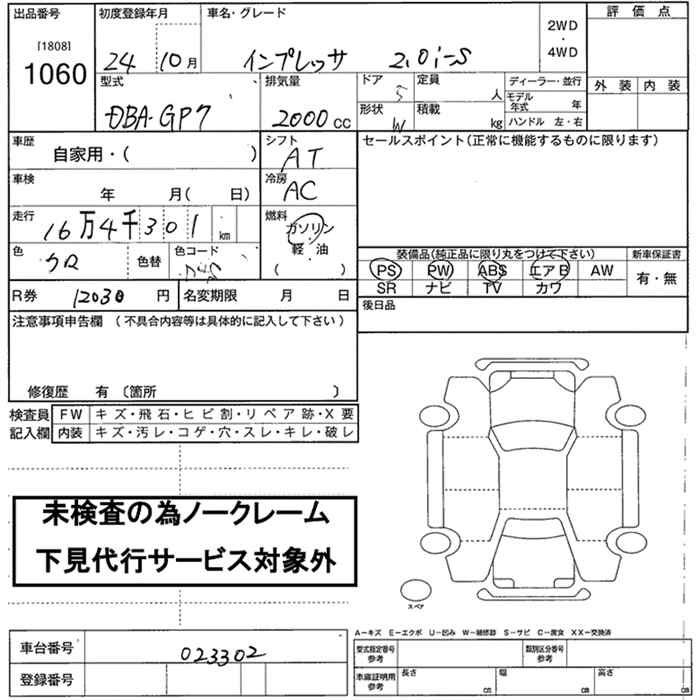 出品番号 初度登録年月 車名・グレード 評価点
[1808]
1060
24 10月 インプレッサ 2.0i-S
2WD
・
4WD
型式 排気量 ドア 定員 ディーラー・並行 外装 内装
5 人 モデル年式 年
DBA-GP7 2000cc 形状 積載
W kg ハンドル 左・右
車歴 自家用・( ) シフト AT セールスポイント(正常に機能するものに限ります)
車検 年 月( 日) 冷房 AC
走行 16万4千301km 燃料 ガソリン
軽・油
( )
色 クロ 色替 色コード
装備品(純正品に限り丸をつけて下さい) 新車保証書
PS PW ABS エアB AW 有・無
SR ナビ TV カワ
R券 12030円 名変期限 月 日 後日品
注意事項申告欄 (不具合内容等は具体的に記入して下さい)
修復歴 有〔箇所 〕
検査員 FW キズ・飛石・ヒビ割・リペア跡・X要
記入欄 内装 キズ・汚レ・コゲ・穴・スレ・キレ・破レ
未検査の為ノークレーム
下見代行サービス対象外
スペア
A-キズ E-エクボ U-凹み W-補修跡 S-サビ C-腐食 XX-交換済
車台番号 023302 型式指定番号 参考 類別区分番号 参考
登録番号 車庫証明用 参考 長さ cm 幅 cm 高さ cm